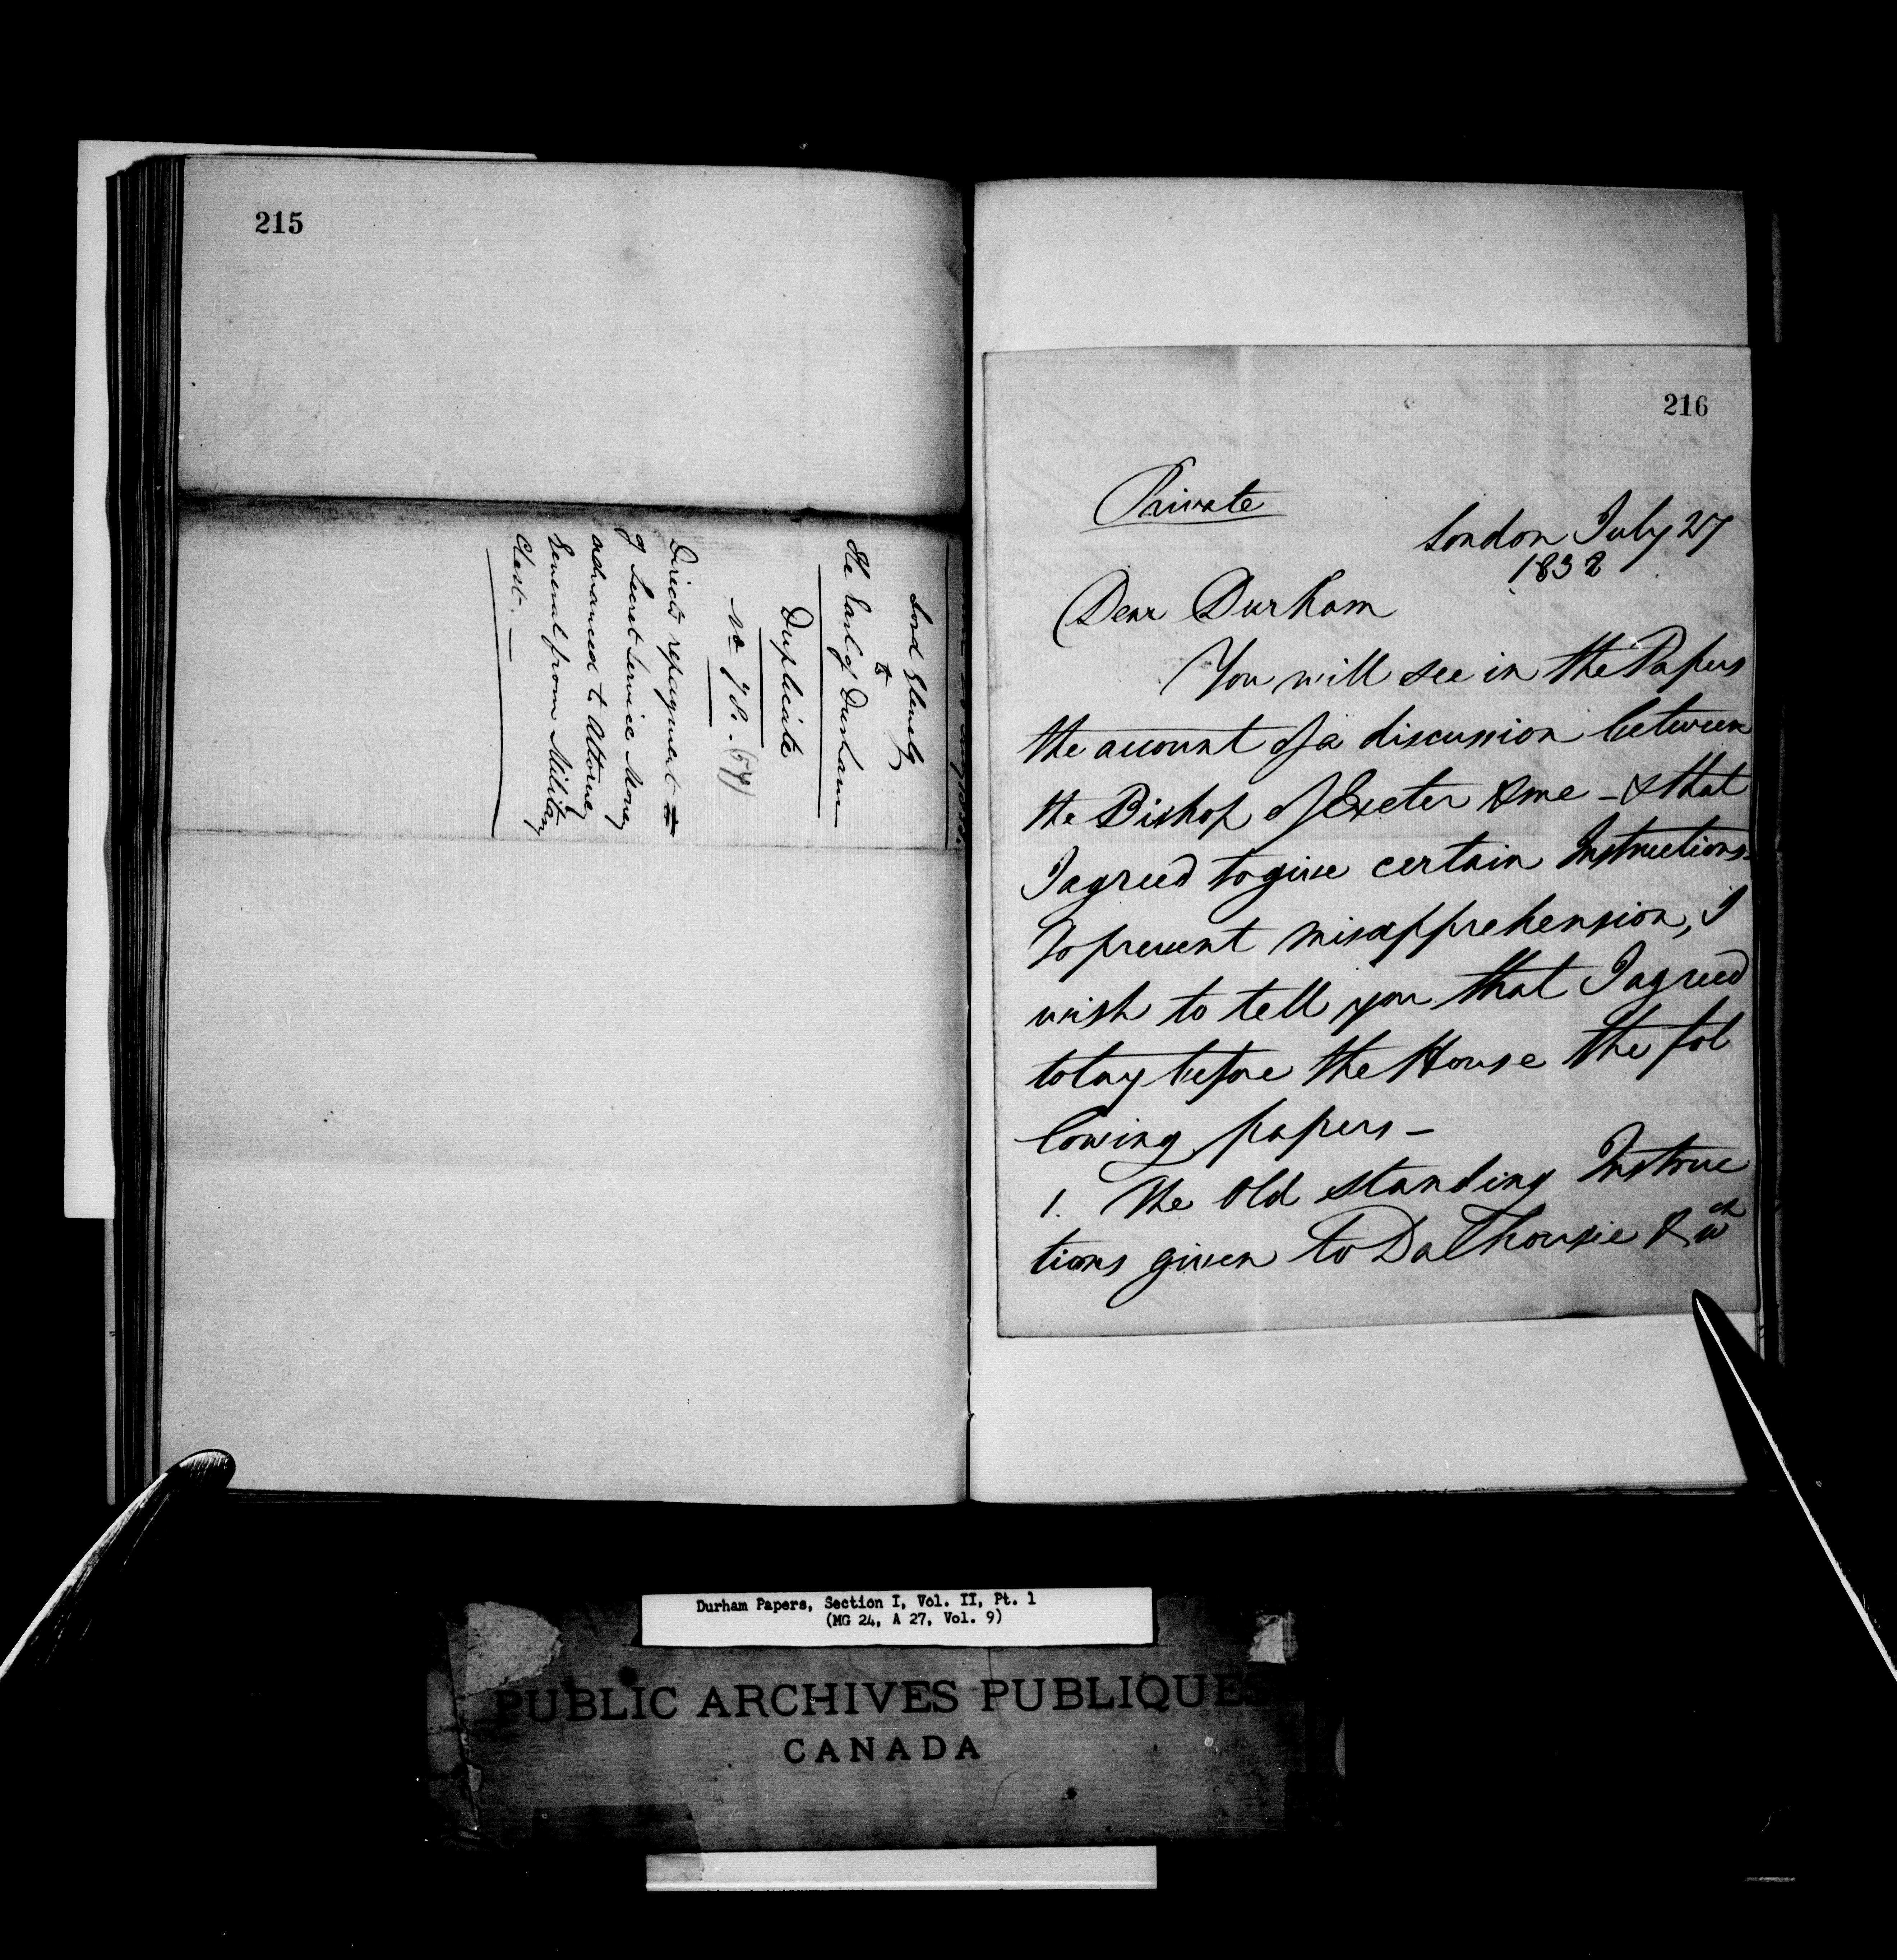 215
Lord Glenelg
to
The Earl of Durham
Duplicate
No 78. (54)
Directs repayment
of Secret Service Money
advanced to Attorney
General from Military
Chest. —
216
Private
London July 27
1838
Dear Durham
You will see in the Papers
the account of a discussion between
the Bishop of Exeter & me – & that
I agreed to give certain Instructions.
To prevent misapprehension, I
wish to tell you that I agreed
to lay before the House the fol
lowing papers –
1. The Old standing Instruc
tions given to Dalhousie & wch
Durham Papers, Section I, Vol. II, Pt. 1
(MG 24, A 27, Vol. 9)
PUBLIC ARCHIVES PUBLIQUES
CANADA